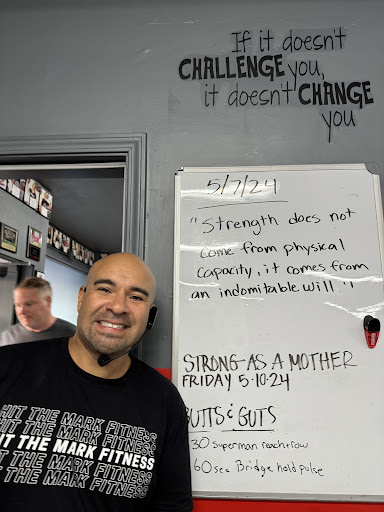 If it doesn't
CHALLENGE you,
it doesn't CHANGE
you
5/7/24
"Strength does not
come from physical
capacity, it comes from
an indomitable will."
STRONG AS A MOTHER
FRIDAY 5-10-24
BUTTS & GUTS
30 superman reach+row
60sec Bridge hold pulse
HIT THE MARK FITNESS
HIT THE MARK FITNESS
HIT THE MARK FITNESS
HIT THE MARK FITNESS
HIT THE MARK FITNESS